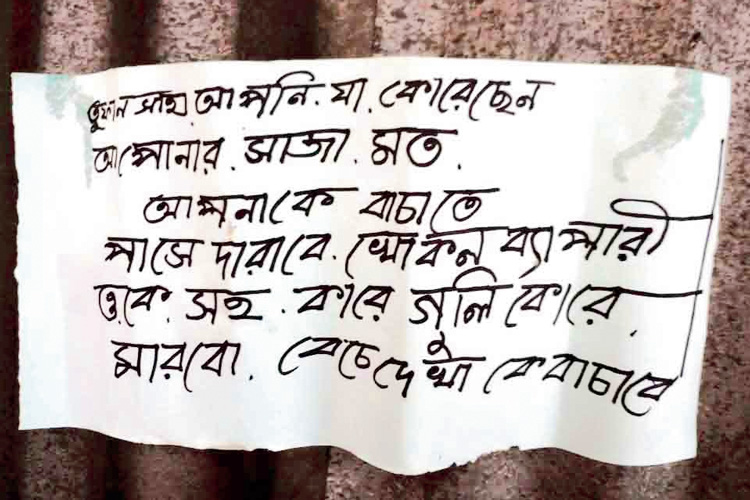 তুফান সাহা আপনি. যা. কোরেছেন
আপোনার. সাজা. মত.
আপনাকে বাচাতে
পাসে দারাবে. খোকন ব্যাপারী
ওকে. সহ. কারে গুলি কোরে.
মারবো. বেচে দেখা কে বাচাবে